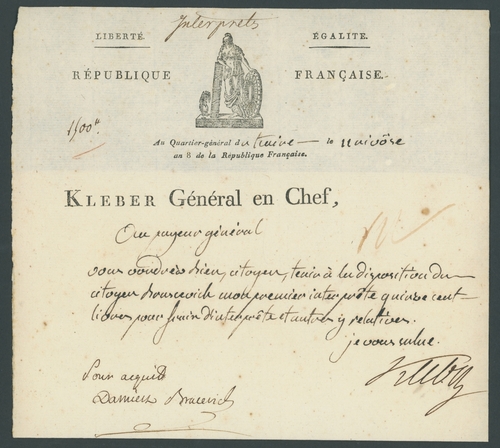 Interprets
LIBERTÉ. ÉGALITE.
RÉPUBLIQUE FRANÇAISE.
1500#
Au Quartier-général du Kaire le 11 nivôse
an 8 de la République Française.
KLEBER Général en Chef,
Au payeur général
vous voudres bien, citoyen, tenir à la disposition du
citoyen Bracevich mon premier interprète quinze cent
livres pour frais d'interprète et autres y relatives.
je vous salue.
Kleber
Pour acquit
Damien Bracevich